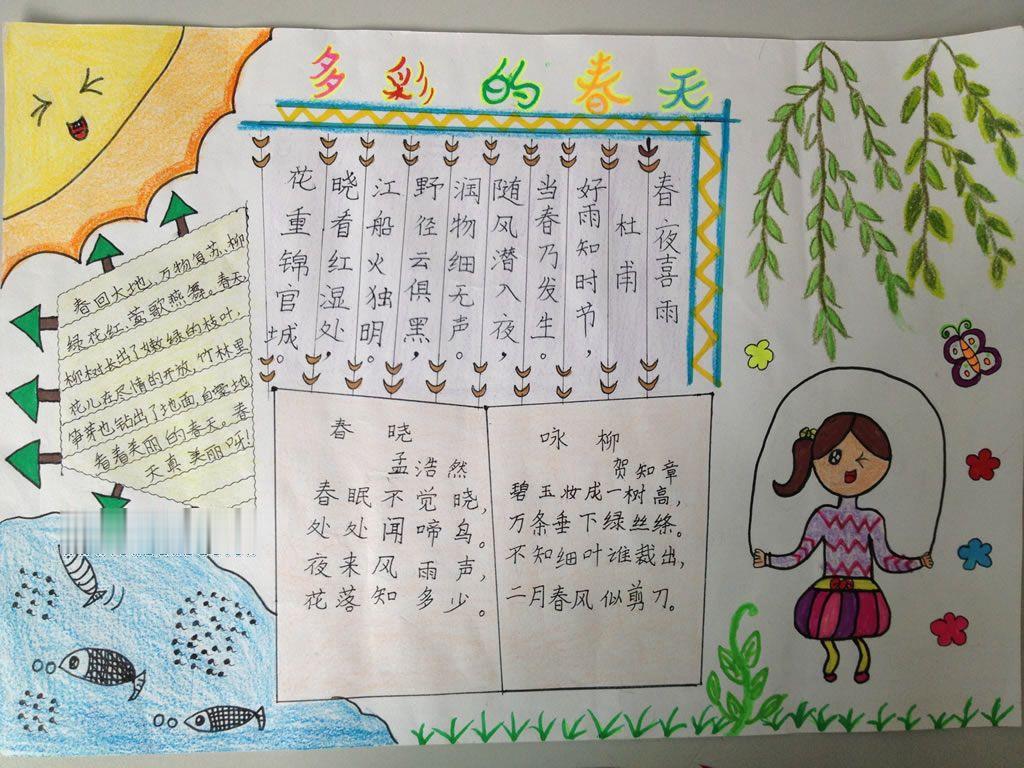 多彩的春天
春夜喜雨
杜甫
好雨知时节，
当春乃发生。
随风潜入夜，
润物细无声。
野径云俱黑，
江船火独明。
晓看红湿处，
花重锦官城。
春回大地，万物复苏，柳
绿花红，莺歌燕舞。春天
柳树长出了嫩绿的枝叶，
花儿在尽情的开放，竹林里
笋芽也钻出了地面，自豪地
看着美丽的春天。春
天真美丽呀！
春晓
孟浩然
春眠不觉晓，
处处闻啼鸟。
夜来风雨声，
花落知多少。
咏柳
贺知章
碧玉妆成一树高，
万条垂下绿丝绦。
不知细叶谁裁出，
二月春风似剪刀。